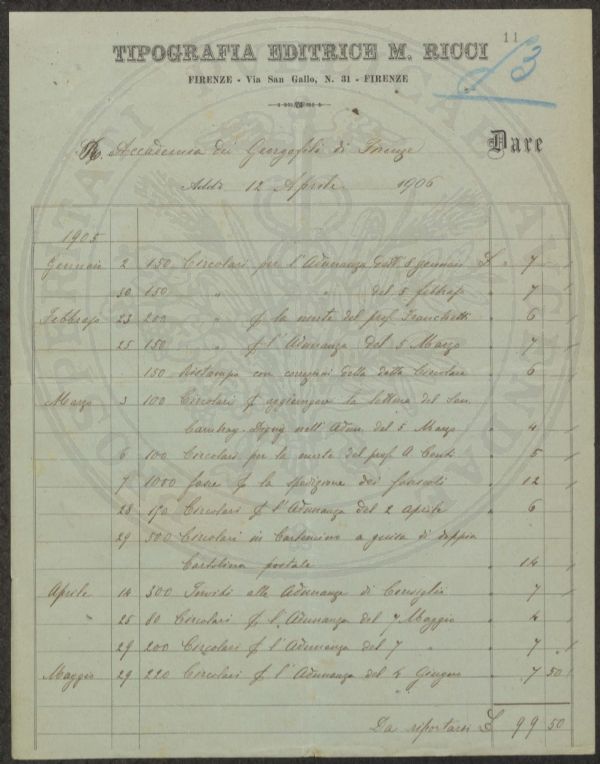 11
£ 3
TIPOGRAFIA EDITRICE M. RICCI
FIRENZE - Via San Gallo, N. 31 - FIRENZE
R. Accademia dei Georgofili di Firenze Dare
Addì 12 Aprile 1906
1905
Gennaio 2 150 Circolari per l'Adunanza dell' 8 gennaio £ " 7 —
30 150 " " del 5 febbraio " 7
Febbraio 23 200 " p la morte del prof. Franchetti " 6
25 150 " p l'Adunanza del 5 Marzo " 7
150 Ristampa con correzioni della detta Circolare " 6
Marzo 3 100 Circolari p aggiungere la lettura del Sen.
Cambray-Digny nell'Adun. del 5 Marzo " 4
6 100 Circolari per la morte del prof. A. Conti " 5
7 1000 fasce p la spedizione dei fascicoli " 12
28 150 Circolari p l'Adunanza del 2 Aprile " 6
29 500 Circolari in Cartoncino a guisa di doppia
Cartolina postale " 14
Aprile 14 300 Inviti alle Adunanze di Consiglio " 7
" 25 80 Circolari p l'Adunanza del 7 Maggio " 4
29 200 Circolari p l'Adunanza del 7 " " 7
Maggio 29 220 Circolari p l'Adunanza del 4 Giugno " 7 50
Da riportarsi £ 99 50